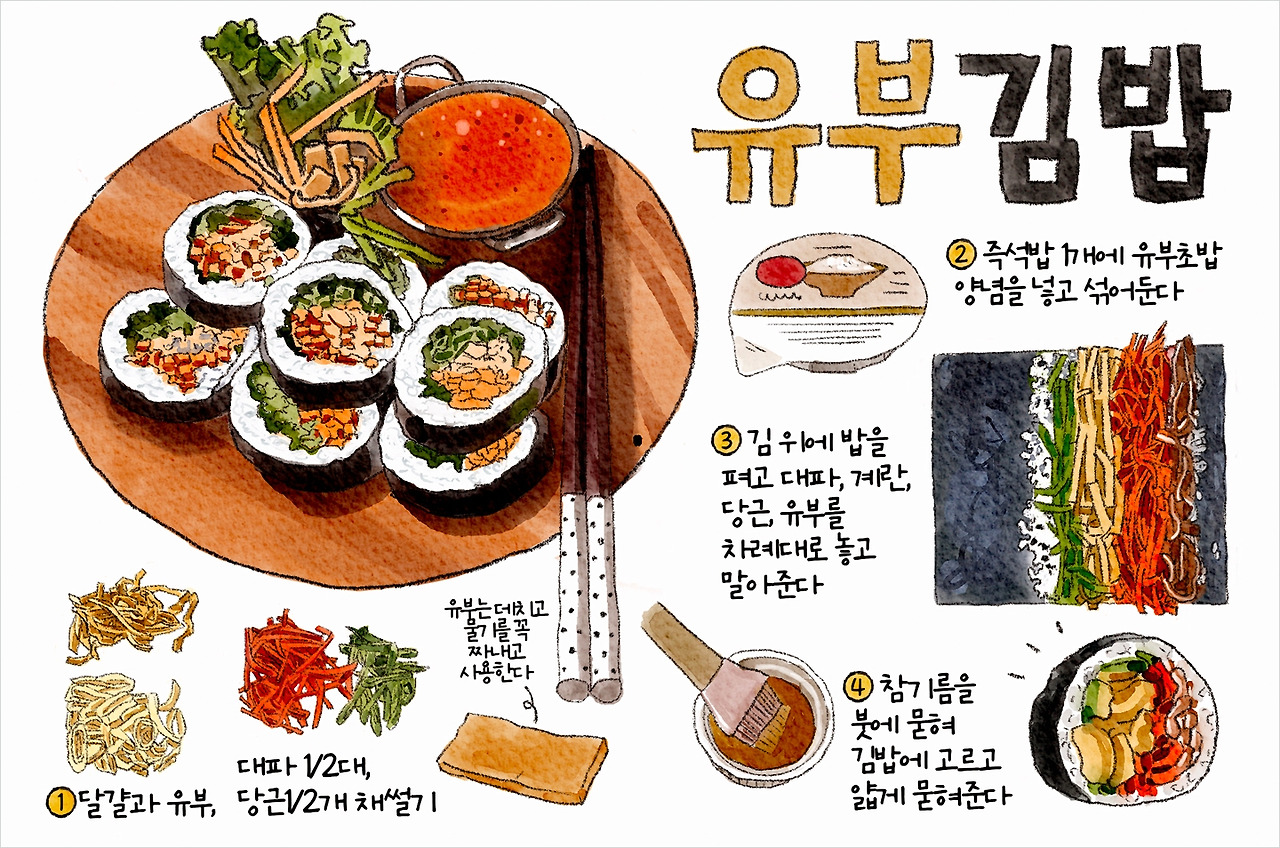 유부김밥
② 즉석밥 1개에 유부초밥
양념을 넣고 섞어둔다
③ 김 위에 밥을
펴고 대파, 계란,
당근, 유부를
차례대로 놓고
말아준다
유부는 데치고
물기를 꼭
짜내고
사용한다
대파 1/2대,
① 달걀과 유부, 당근1/2개 채썰기
④ 참기름을
붓에 묻혀
김밥에 고르고
얇게 묻혀준다